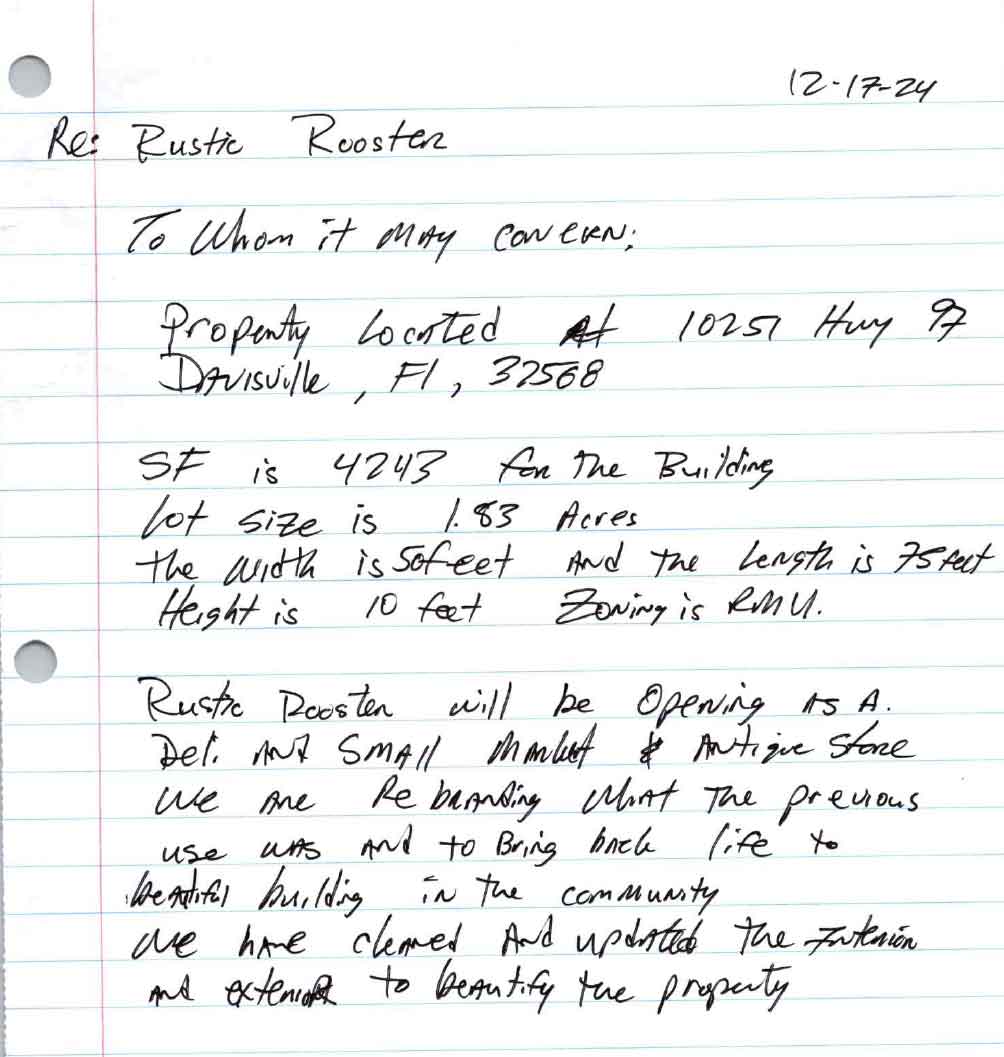 12-17-24
Re: Rustic Rooster
To Whom it MAY CONCERN:
Property Located At 10251 Hwy 97
DAVISVille, Fl, 32568
SF is 4243 for The Building
Lot size is 1.83 Acres
the width is 50feet And the Length is 75 feet
Height is 10 feet Zoning is RMU.
Rustic Rooster will be Opening As A.
Deli AND SMAll Market & Antique Store
We Are Rebranding What The previous
use was And to Bring back life to
beautiful building in the community
We have cleaned And updated the Interior
And exterior to beautify the property